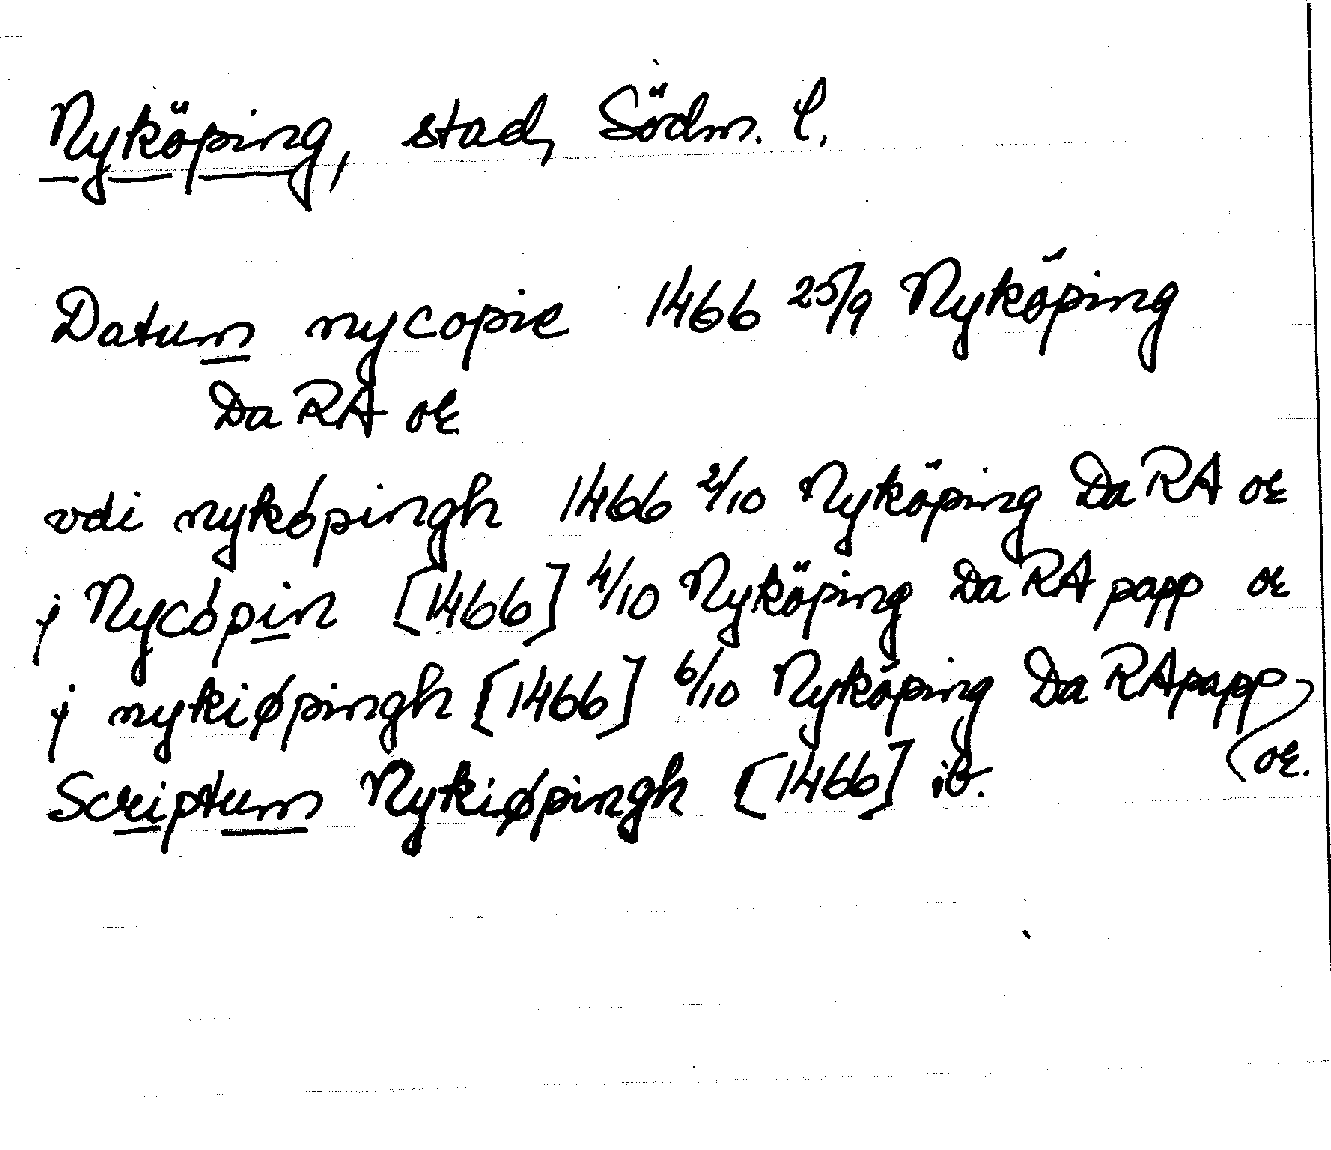 Nyköping, stad, Södm. l.
Datum nycopie 1466 25/9 Nyköping
Da RA or
vdi nykópingh 1466 2/10 Nyköping Da RA or
j Nycópin [1466] 4/10 Nyköping Da RA papp or
j nykiøpingh [1466] 6/10 Nyköping Da RA papp
or.
Scriptum Nykiøpingh [1466] ib.